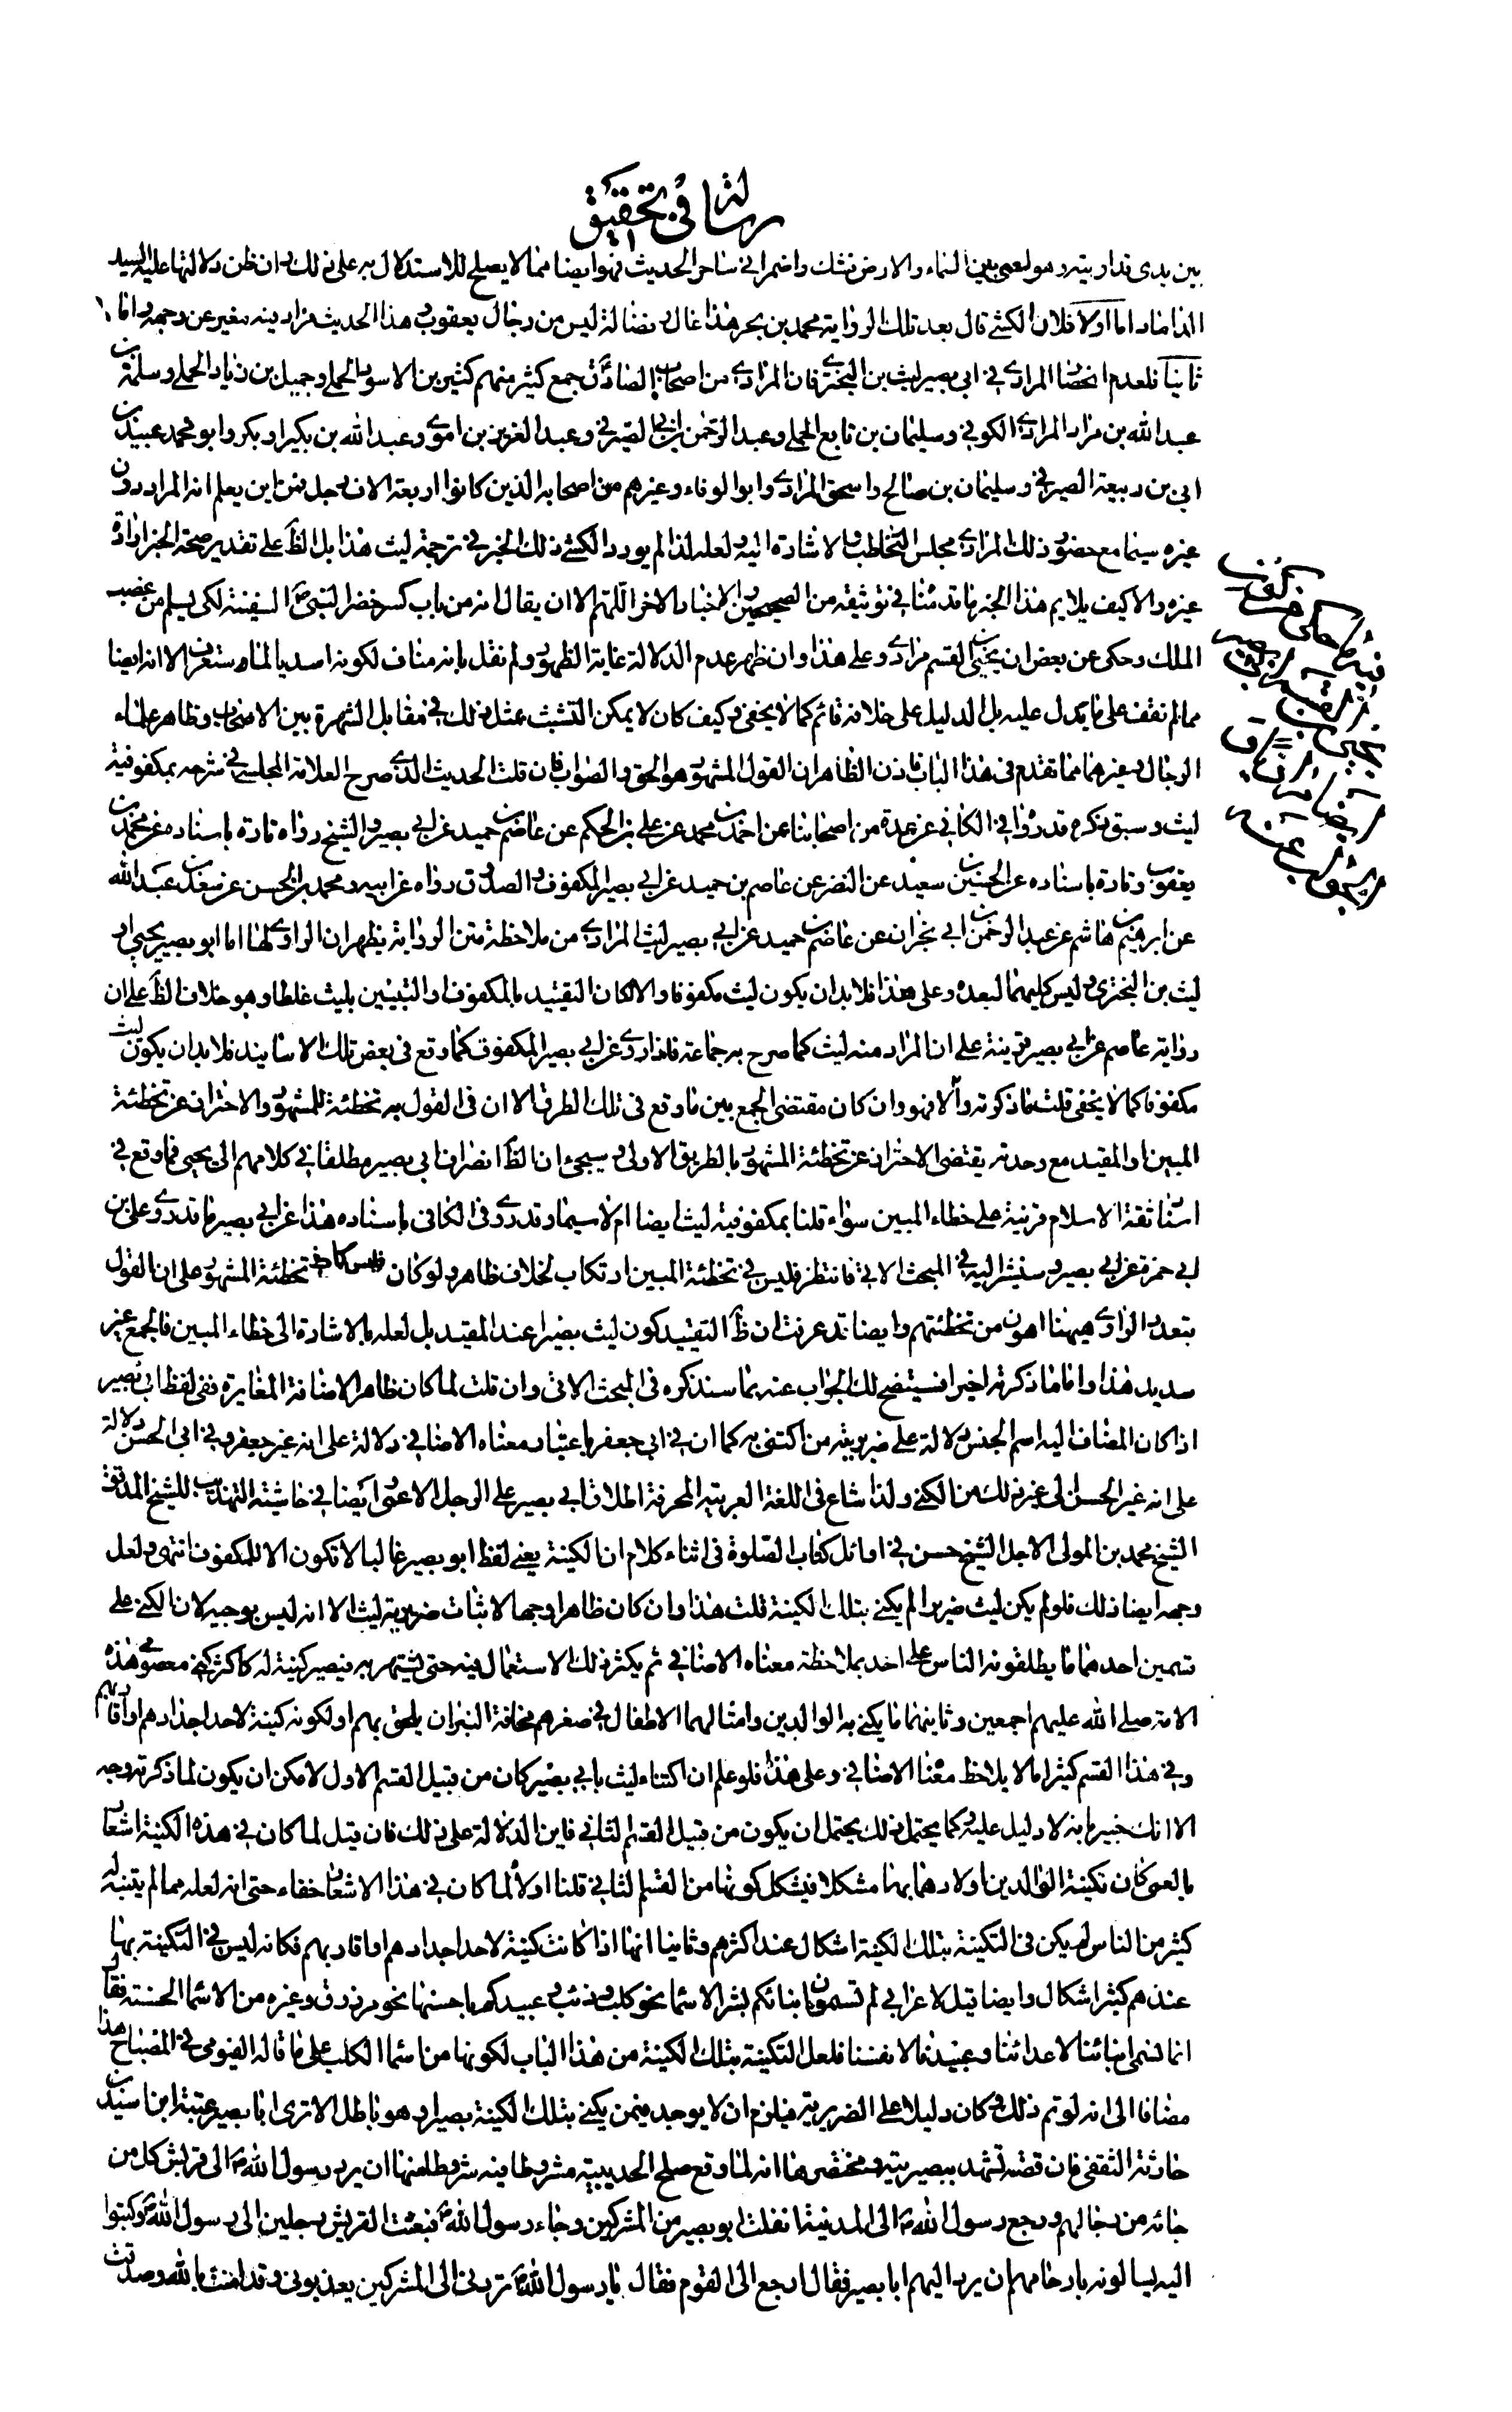 رسالة في تحقيق
بين يدى تدار بيته وهو لعمى بين السماء والارض فشك واضمر الى ساحر الحديث فهو ايضا مما لا يصلح للاستدلال به على ذلك وان ظن دلالتها عليه السيد
الداماد اما اولا فلان الكشى قال بعد تلك الرواية محمد بن بحر هذا غال وفضالة ليس من رجال يعقوب هذا الحديث مزاد فيه مغير عن وجهه واما
ثانيا فلعدم انحصار المرادى فى ابى بصير ليث بن البخترى فان المرادى من اصحاب الصادق جمع كثير منهم كثير بن الاسود الجملى وجميل بن زياد الجملى وسلمة بن
عبد الله بن مراد المرادى الكوفى وسليمان بن تابع الجملى وعبد الرحمن بن ابى الصيرفى وعبد العزيز بن اموى وعبد الله بن بكير اوبكر وابو محمد عبيد بن
ابى بن ربيعة الصيرفى وسليمان بن صالح واسحق المرادى وابو الوفاء وغيرهم من اصحابه الذين كانوا اربعة الاف رجل فمن اين يعلم انه المراد دون
غيره سيما مع حضور ذلك المرادى مجلس التخاطب والاشارة اليه ولعله لذا لم يورد الكشى ذلك الخبر فى ترجمة ليث هذا بل الظ على تقدير صحة الخبر ارادة
غيره والا كيف يلايم هذا الخبر ما قدمنا فى توثيقه من الصحيحين والاخبار الاخر اللهم الا ان يقال انه من باب كسر خضر النبى السفينة لكى يسلم من غضب
الملك وحكى عن بعض ان يحيى بن القسم مرادى وعلى هذا وان ظهر عدم الدلالة غاية الظهور ولم نقل بانه مناف لكونه اسديا لما ستعرف الا انه ايضا
مما لم نقف على ما يدل عليه بل الدليل على خلافه قائم كما لا يخفى وكيف كان لا يمكن التشبث بمثل ذلك فى مقابل الشهرة بين الاصحاب وظاهر علماء
الرجال وغيرهما مما تقدم فى هذا الباب فاذن الظاهر ان القول المشهور هو الحق والصواب فان قلت الحديث الذى صرح العلامة المجلسى فى شرحه بمكفوفية
ليث وسبق ذكره قد رواه فى الكافى عن عدة من اصحابنا عن احمد بن محمد عن على بن الحكم عن عاصم بن حميد عن ابى بصير والشيخ رواه تارة باسناده عن محمد بن
يعقوب وتارة باسناده عن الحسين بن سعيد عن النضر عن عاصم بن حميد عن ابى بصير المكفوف والصدوق رواه عن ابيه ومحمد بن الحسن عن سعد بن عبد الله
عن ابرهيم بن هاشم عن عبد الرحمن بن ابى نجران عن عاصم بن حميد عن ابى بصير ليث المرادى من ملاحظة متن الرواية يظهر ان الراوى لها اما ابو بصير يحيى او
ليث بن البخترى وليس كليهما لبعده وعلى هذا فلا بد ان يكون ليث مكفوفا والا لكان التقييد بالمكفوف او التبيين بليث غلطا وهو خلاف الظ على ان
رواية عاصم عن ابى بصير قرينة على ان المراد منه ليث كما صرح به جماعة فاذا روى عن ابى بصير المكفوف كما وقع فى بعض تلك الاسانيد فلا بد ان يكون ليث
مكفوفا كما لا يخفى قلت ما ذكرته اولا فهو وان كان مقتضى الجمع بين ما وقع فى تلك الطرق الا ان فى القول به تخطئة للمشهور والاحتراز عن تخطئة
المبين والمقيد مع وحدته يقتضى الاحتراز عن تخطئة المشهور بالطريق الاولى وسيجئ ان الظ انصراف ابى بصير مطلقا فى كلامهم الى يحيى فما وقع فى
اسناد ثقة الاسلام قرينة على خطاء المبين سواء قلنا بمكفوفية ليث ايضا ام لا سيما وقد روى فى الكافى باسناده هذا عن ابى بصير ما قد روى على بن
ابى حمزة عن ابى بصير وسنشير اليه فى المبحث الاتى فانتظر فليس فى تخطئة المبين ارتكاب لخلاف ظاهر ولو كان فليس كما فى تخطئة المشهور على ان القول
بتعدد الراوى هيهنا اهون من تخطئتهم وايضا قد عرفت ان ظ التقييد كون ليث بصيرا عند المقيد بل لعله بالاشارة الى خطاء المبين فالجمع غير
سديد هذا واما ما ذكرته اخيرا فسيتضح لك الجواب عنه بما سنذكره فى المبحث الاتى وان قلت لما كان ظاهر الاضافة المغايرة ففى لفظ ابى بصير
اذا كان المضاف اليه اسم الجنس دلالة على ضريرية من اكتنى به كما ان فى ابى جعفر باعتبار معناه الاضافى دلالة على انه غير جعفر وفى ابى الحسن دلالة
على انه غير الحسن الى غير ذلك من الكنى ولذا شاع فى اللغة العربية المحرفة اطلاق ابى بصير على الرجل الاعمى ايضا فى حاشية التهذيب للشيخ المدقق
الشيخ محمد بن المولى الاجل الشيخ حسن فى اوائل كتاب الصلوة فى اثناء كلام ان الكنية يعنى لفظ ابو بصير غالبا لا تكون الا للمكفوف انتهى ولعل
وجهه ايضا ذلك فلو لم يكن ليث ضريرا لم يكنى بتلك الكنية قلت هذا وان كان ظاهرا وجها لاثبات ضريرية ليث الا انه ليس بوجيه لان الكنى على
قسمين احدهما ما يطلقونه الناس على احد بملاحظة معناه الاضافى ثم يكثر ذلك الاستعمال فيه حتى يشتهر به فيصير كنية له كاكثر كنى معصومى هذه
الامة صلى الله عليهم اجمعين وثانيهما ما يكنى به الوالدين وامثالهما الاطفال فى صغرهم مخافة النبز ان يلحق بهم او لكونه كنية لاحد اجدادهم او اقاربهم
وفى هذا القسم كثيرا ما لا يلاحظ معناه الاضافى وعلى هذا فلو علم ان اكتناء ليث بابى بصير كان من قبيل القسم الاول لامكن ان يكون لما ذكرته وجه
الا انك خبير بانه لا دليل عليه وكما يحتمل ذلك يحتمل ان يكون من قبيل القسم الثانى فاين الدلالة على ذلك فان قيل لما كان فى هذه الكنية اشعار
بالعمى كان تكنية الوالدين اولادهما بها مشكلا فيشكل كونها من القسم الثانى قلنا اولا لما كان فى هذا الاشعار خفاء حتى انه لعله مما لم يتنبه له
كثير من الناس لم يكن فى التكنية بتلك الكنية اشكال عند اكثرهم وثانيا انها اذا كانت كنية لاحد اجدادهم او اقاربهم فكانه ليس فى التكنية بها
عندهم كثير اشكال وايضا قيل لاعرابى لم تسمون ابنائكم بشر الاسماء نحو كلب وذئب وعبيدكم باحسنها نحو مرزوق وغيره من الاسماء الحسنة فقال
انما نسمى ابنائنا لاعدائنا وعبيدنا لانفسنا فلعل التكنية بتلك الكنية من هذا الباب لكونها من اسماء الكلب على ما قاله الفيومى فى المصباح هذا
مضافا الى انه لو تم ذلك وكان دليلا على الضريرية فيلزم ان لا يوجد فيمن يكنى بتلك الكنية بصيرا وهو باطل الا ترى ابا بصير عتبة بن اسيد بن
حارثة الثقفى فان قصته تشهد ببصيريته ومختصرها انه لما وقع صلح الحديبية مشروطا فيه شروط منها ان يرد رسول الله الى قريش كل من
جائه من رجالهم ورجع رسول الله الى المدينة انفلت ابو بصير من المشركين وجاء رسول الله فبعثت القريش رجلين الى رسول الله وكتبوا
اليه يسالونه بارحامهم ان يرد اليهم ابا بصير فقال ارجع الى القوم فقال يا رسول الله تردنى الى المشركين يعذبونى وقد امنت بالله وصدقت